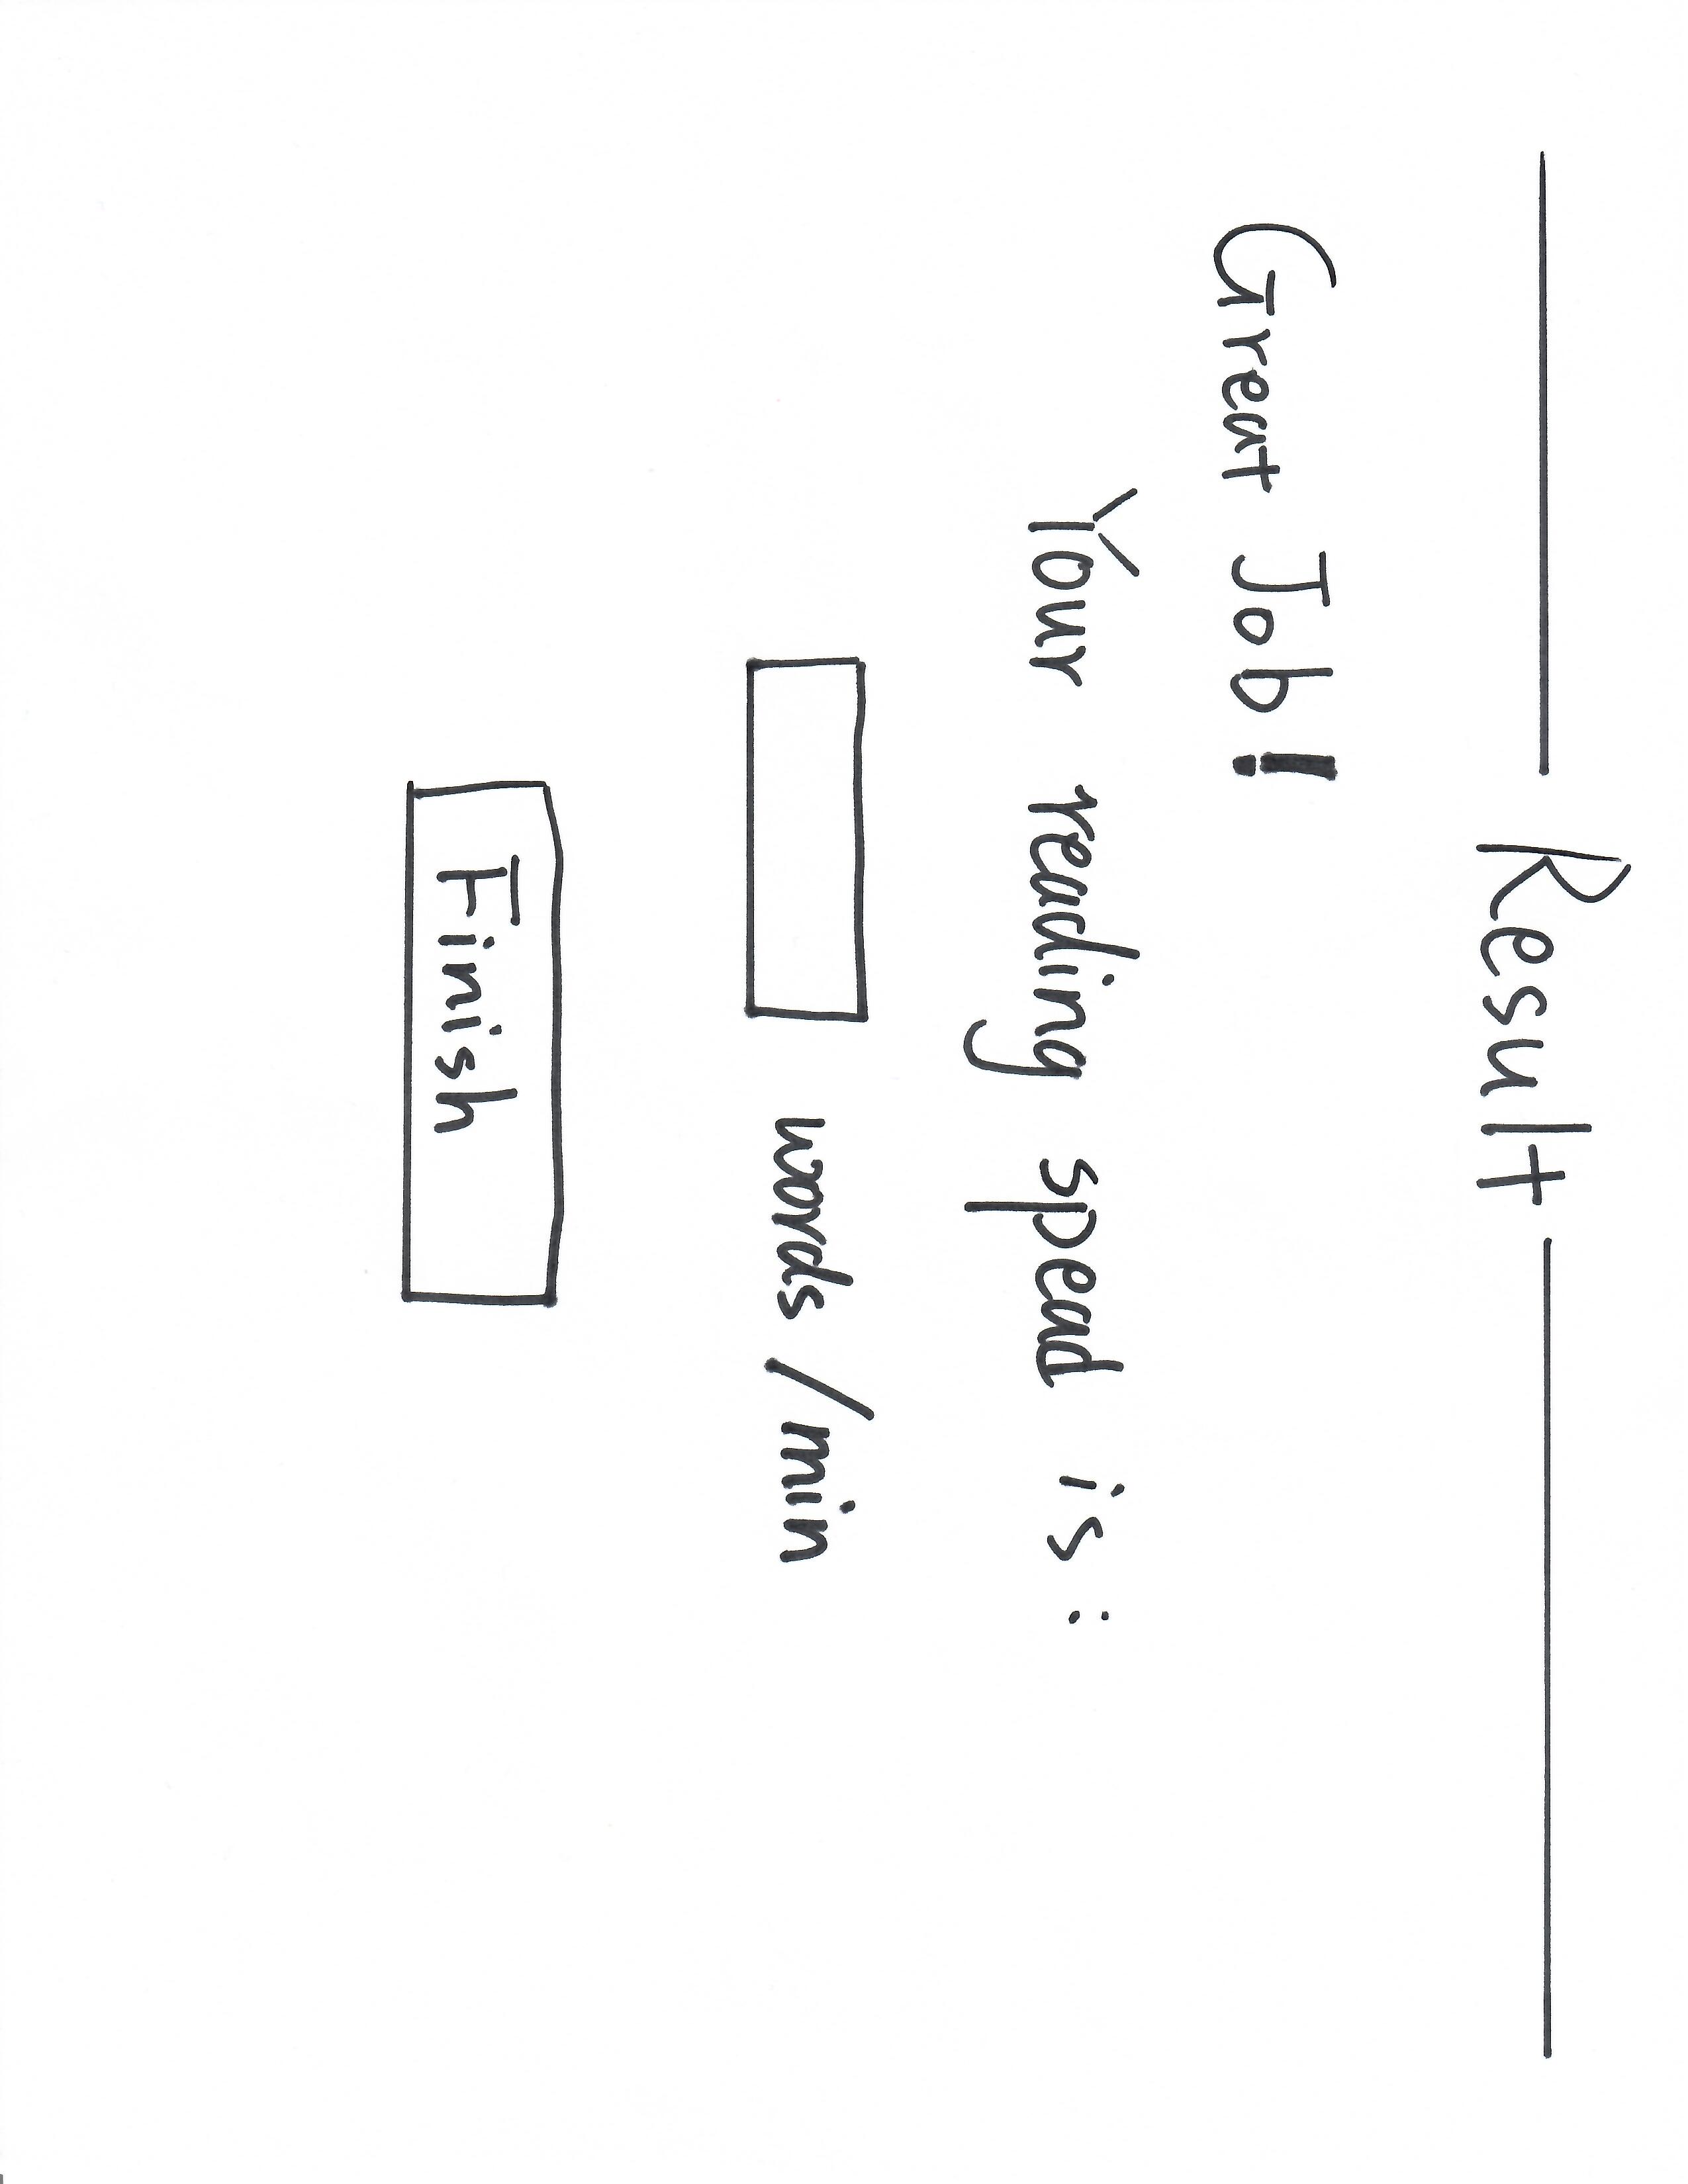 Result
Great Job!
Your reading spead is:
words/min
Finish